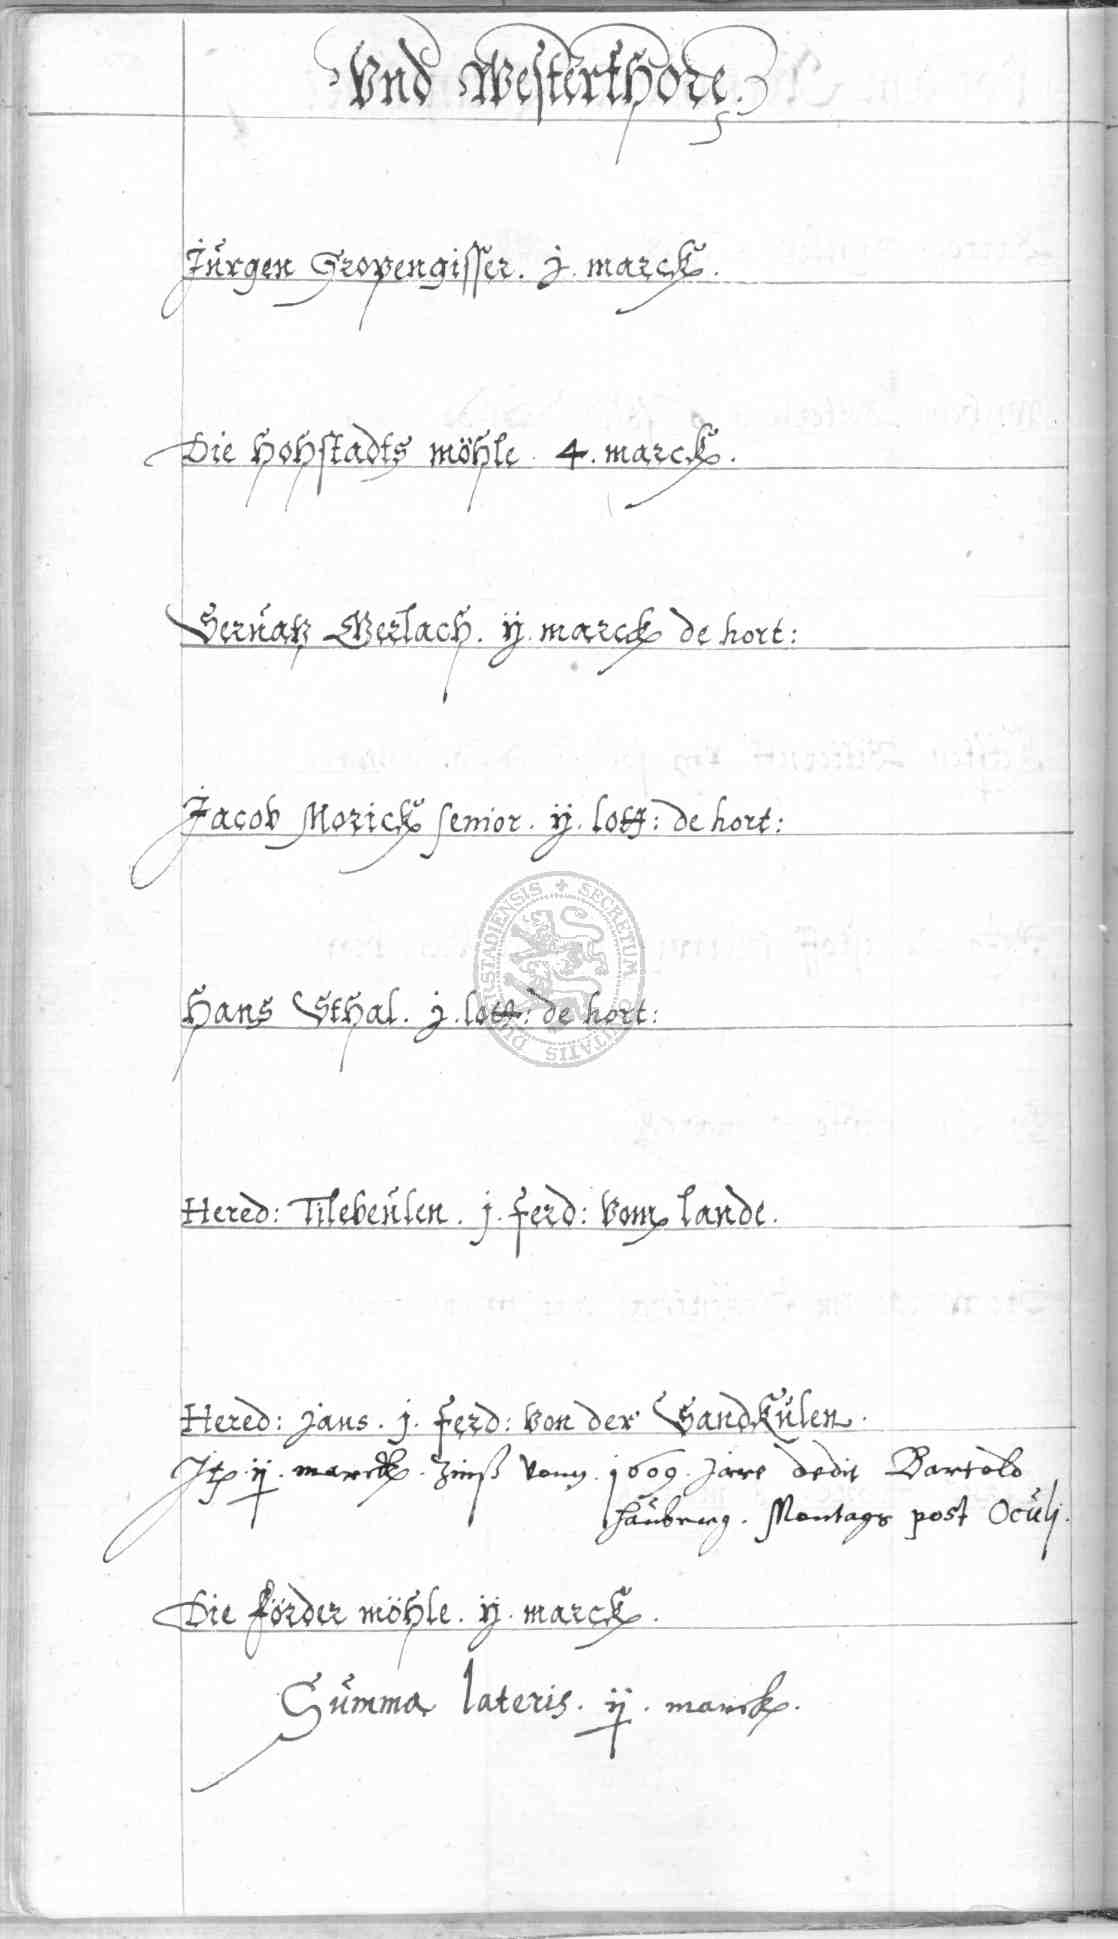 Vnd Westerthore.
Jürgen Gropengisser. j. marck.
Die Hohstadts möhle. 4. marck.
Gerlach. ij. marck de hort:
Jacob Morick senior. ij. lott: de hort:
Hans Sthal. j. lott: de hort:
Hered: Tilebeulen. j. ferd: vom lande.
Hered: Jans. j. ferd: von der Sandkülen.
Jt. ij. marck. Zinß vom. 1609. Jare dedit Bartold
Haubnerg. Montags post Oculj.
Die förder möhle. ij. marck.
Summa lateris. ij. marck.
SECRETUM CIVITATIS DUDERSTADIENSIS